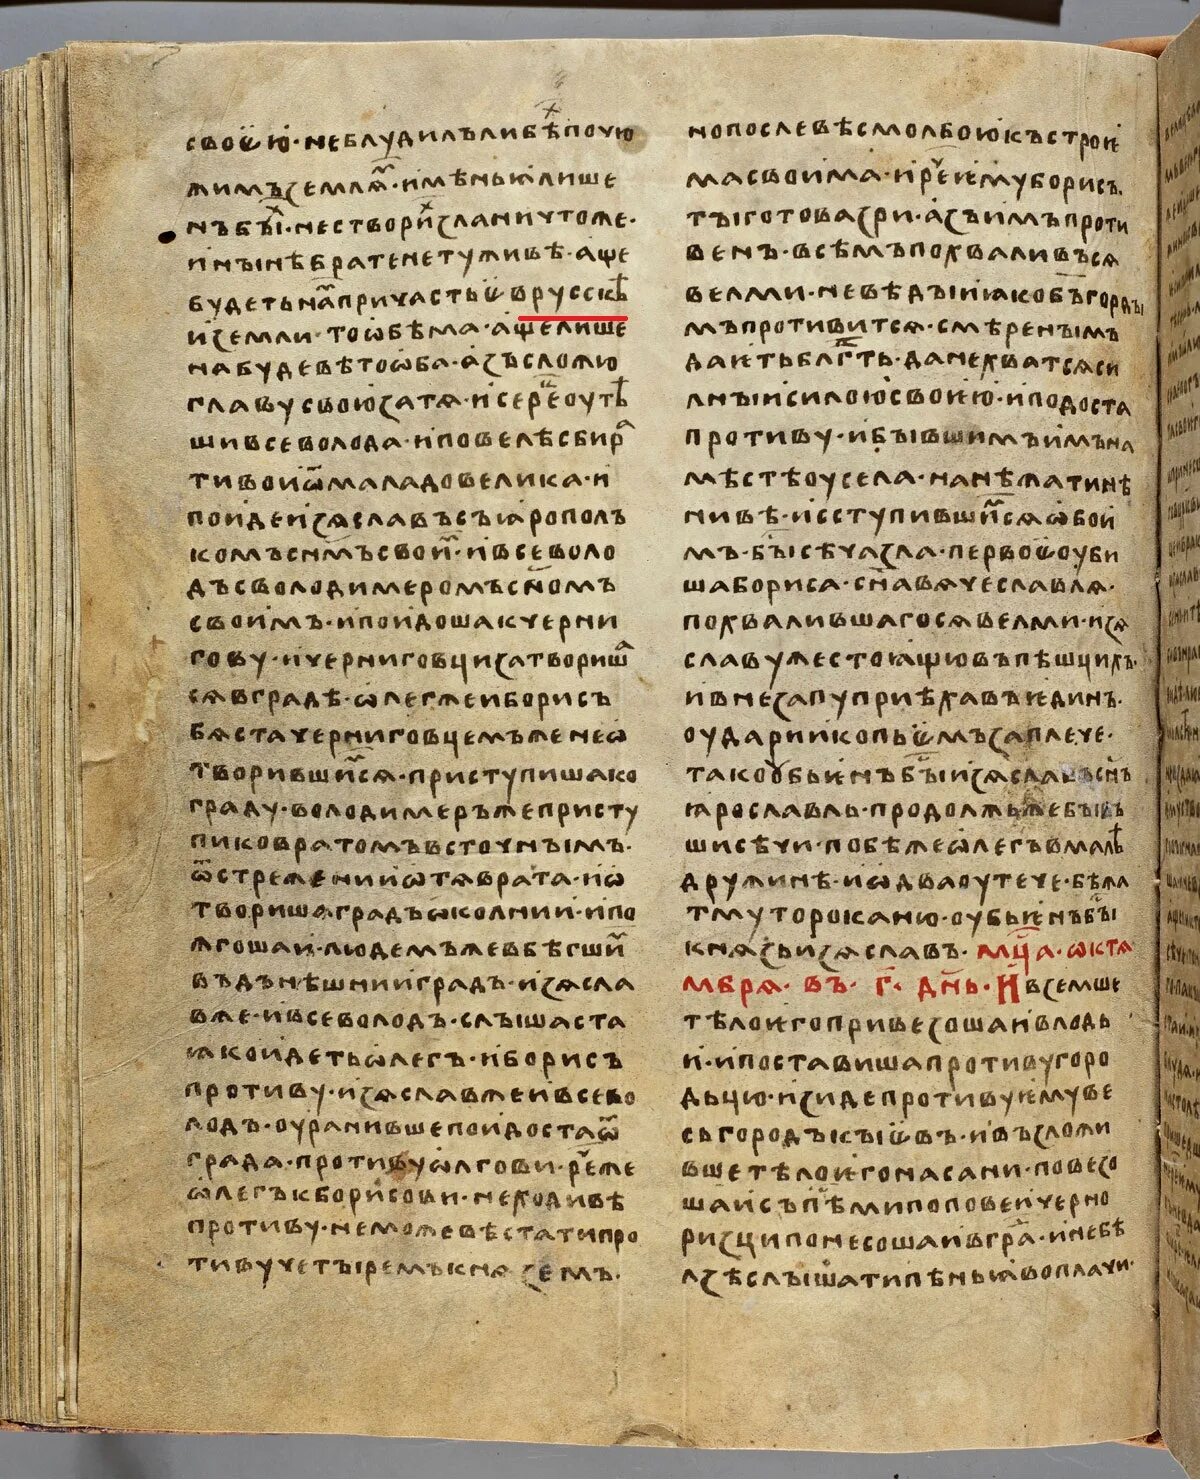 своѥю · не блудилъ ли бѣ по чю
жимъ землѧⷨ · имѣньꙗ лише
нъ бꙑⷯ · не створиⷯ зла ничтоже ·
и нꙑнѣ брате не туживѣ · аще
будеть наⷨ причастьѥ в русскѣ
и земли · то ѡбѣма · аще лише
на будевѣ то ѡба · азъ сложю
главу свою за тѧ · и се реⷱ҇ оутѣ
ши всеволода · и повелѣ сбираⷮ
ти вои ѿ мала до велика · и
поиде изѧславъ съ ꙗрополъ
комъ сн҃мъ своиⷨ · и всеволо
дъ с володимеромъ сн҃омъ
своимъ · и поидоша к черни
гову · и черниговци затворишаⷭ
сѧ в градѣ · ѡлег же и борисъ
бѧста черниговцем же не ѿ
творившиⷨсѧ · приступиша ко
граду · володимеръ же присту
пи ко вратомъ всточнымъ ·
ѿ стрежени и ѿтѧ врата · и ѿ
твориша градъ ѡколнии · и по
жгоша и · людемъ же вбѣгшиⷨ
въ дънѣшнии градъ · изѧсла
в же · и всеволодъ · слышаста
ꙗко идеть ѡлегъ · и борисъ
противу · изѧслав же и всево
лодъ · оуранивше поидоста ѿ
града · противу ѡлгови · реⷱ҇ же
ѡлегъ к борисови · не ходивѣ
противу · не можевѣ стати про
тиву четыремъ кнѧземъ ·
но послевѣ с молбою къ строи
ма своима · и реⷱ҇ ѥму борисъ ·
ты готова зри · азъ имъ проти
венъ · всѣмъ похваливъсѧ
велми · не вѣдыи ꙗко б҃ъ горды
мъ противитсѧ · смѣренымъ
даѥть блгⷣть · да не хватсѧ си
лныи силою своѥю · и поидоста
противу · и бывшимъ имъ на
мѣстѣ оу села · на нѣжатинѣ
нивѣ · и сступившиⷨсѧ ѡбои
мъ · бы сѣча зла · первоѥ оуби
ша бориса · сн҃а вѧчеславлѧ ·
похвалившагосѧ велми · изѧ
славу же стоꙗщю въ пѣшцихъ ·
и внезапу приѣхавъ ѥдинъ ·
оудари и копьѥмъ за плече ·
тако оубьѥнъ быⷭ изѧславъ сн҃ъ
ꙗрославль · продолжьже бывъ
ши сѣчи · побѣже ѡлегъ в малѣ
дружинѣ · и ѡдва оутече · бѣжа
тмутороканю · оубьѥнъ быⷭ
кнѧзь изѧславъ · мц҃а · ѡктѧ
мбрѧ · въ · г҃ · дн҃ь · и вземше
тѣло ѥго привезоша и в лодь
и · и поставиша противу горо
дьцю · изиде противу ѥму ве
сь городъ кыѥвъ · и възложи
вше тѣло ѥго на сани · повезо
ша и съ пѣⷭми попове и черно
ризци понесоша и в граⷣ · и не бѣ
лзѣ слышати пѣньꙗ во плачи ·